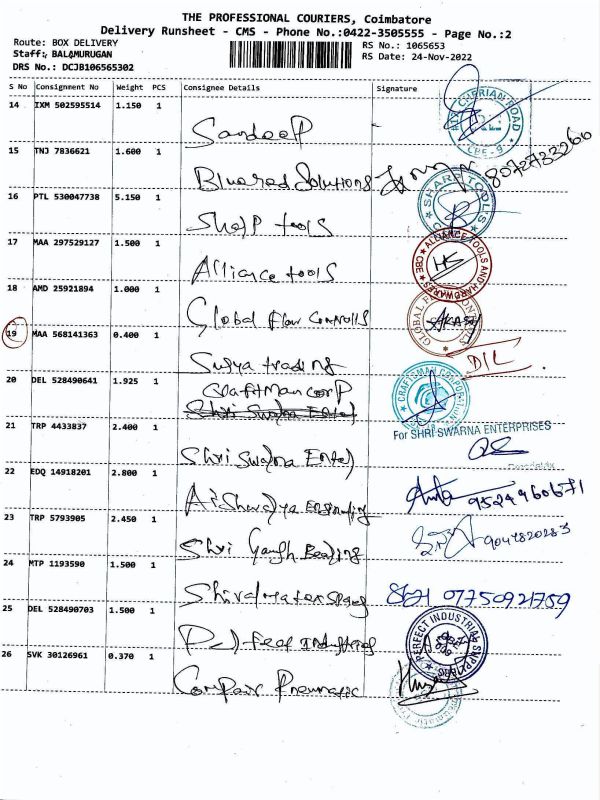 THE PROFESSIONAL COURIERS, Coimbatore
Delivery Runsheet - CMS - Phone No.:0422-3505555 - Page No.:2
Route: BOX DELIVERY
RS No.: 1065653
Staff: BALAMURUGAN
RS Date: 24-Nov-2022
DRS No.: DCJB106565302
S No Consignment No Weight PCS Consignee Details Signature
14 IXM 502595514 1.150 1
Sandeep
CYPRIAN ROAD
CBE-9.
15 TNJ 7836621 1.600 1
Bluerad Solutions 8072733260
16 PTL 530047738 5.150 1
Sharp tools
SHARP TOOLS
17 MAA 297529127 1.500 1
Alliance tools
ALLIANCE TOOLS AND HARDWARES
CBE
18 AMD 25921894 1.000 1
Global Flow Controlls
GLOBAL
19 MAA 568141363 0.400 1
Surya trading
DIL
20 DEL 528490641 1.925 1
Craftman corp
Shri Swarna Enter
CRAFTSMAN CORPORATION
21 TRP 4433837 2.400 1
Shri Swarna Enter
For SHRI SWARNA ENTERPRISES
22 EDQ 14918201 2.800 1
Aishwarya 9524960671
23 TRP 5793905 2.450 1
Shri Bearing 9047820283
24 MTP 1193590 1.500 1
07750921759
25 DEL 528490703 1.500 1
PERFECT INDUSTRIAL
26 SVK 30126961 0.370 1
Compair Pneumatic